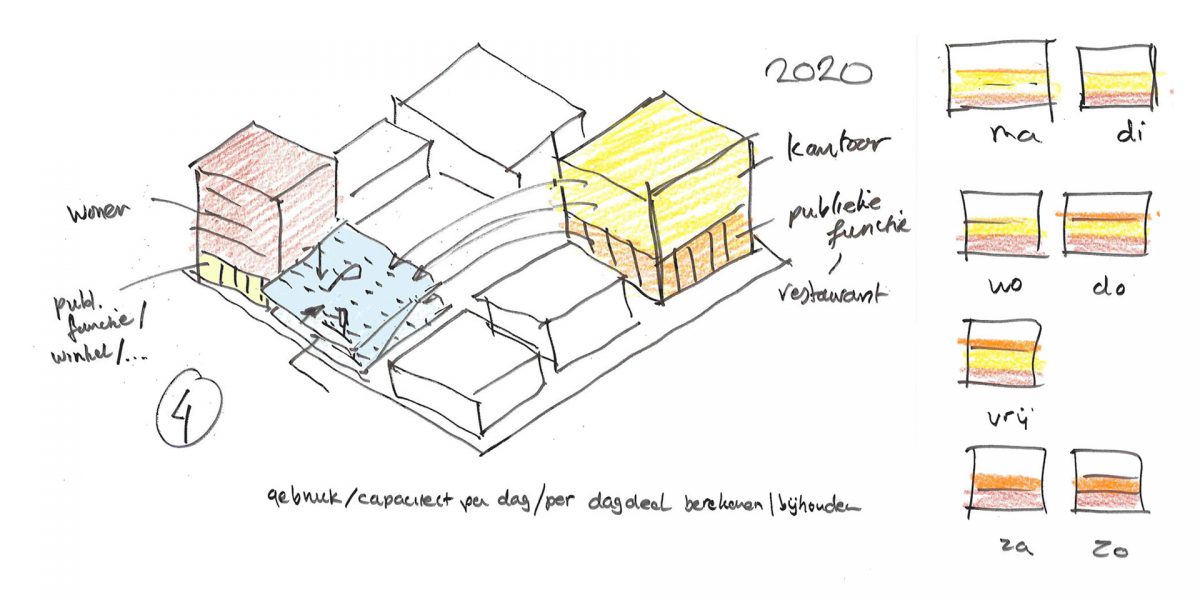 2020
kantoor
publieke
functie
restaurant
wonen
publ.
functie/
winkel/...
4
gebruik/capaciteit per dag/per dagdeel berekenen/bijhouden
ma
di
wo
do
vrij
za
zo